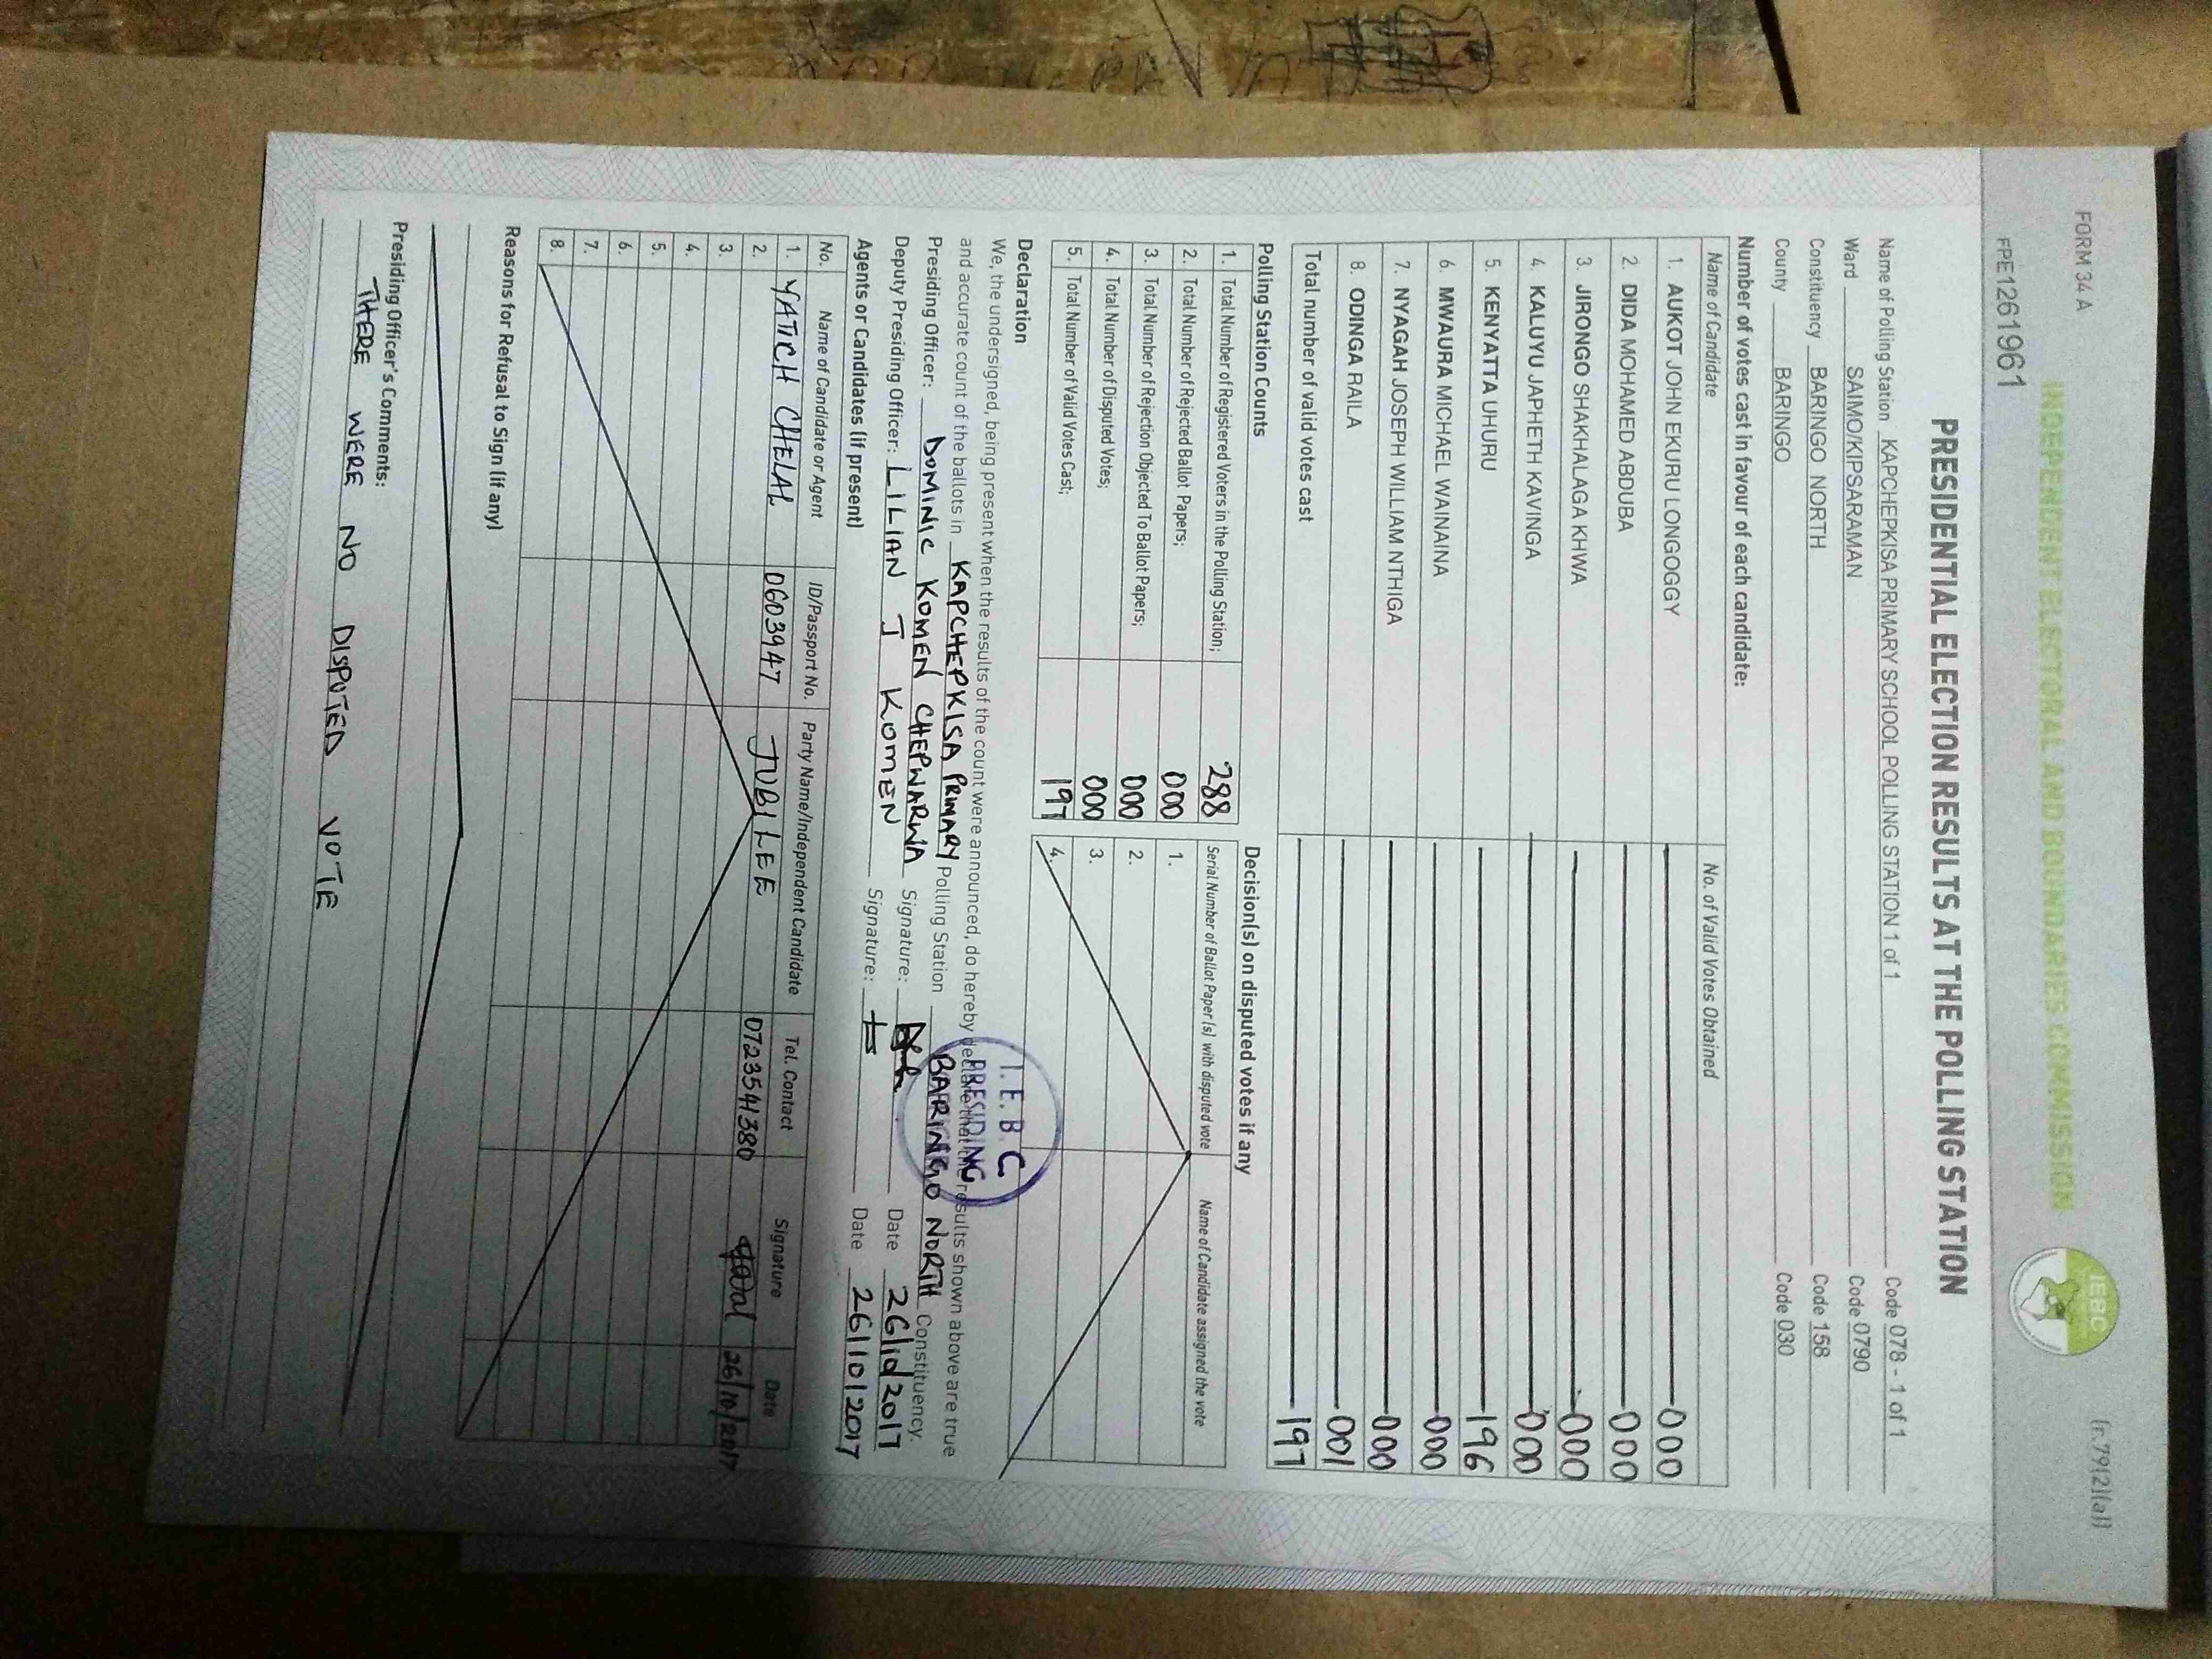 FORM 34 A
(r.79(2)(a))
INDEPENDENT ELECTORAL AND BOUNDARIES COMMISSION
IEBC
FPE1261961
PRESIDENTIAL ELECTION RESULTS AT THE POLLING STATION
Name of Polling Station KAPCHEPKISA PRIMARY SCHOOL POLLING STATION 1 of 1 Code 078 - 1 of 1
Ward SAIMO/KIPSARAMAN Code 0790
Constituency BARINGO NORTH Code 158
County BARINGO Code 030
Number of votes cast in favour of each candidate:
Name of Candidate No. of Valid Votes Obtained
1. AUKOT JOHN EKURU LONGOGGY 000
2. DIDA MOHAMED ABDUBA 000
3. JIRONGO SHAKHALAGA KHWA 000
4. KALUYU JAPHETH KAVINGA 000
5. KENYATTA UHURU 196
6. MWAURA MICHAEL WAINAINA 000
7. NYAGAH JOSEPH WILLIAM NTHIGA 000
8. ODINGA RAILA 001
Total number of valid votes cast 197
Polling Station Counts
1. Total Number of Registered Voters in the Polling Station; 288
2. Total Number of Rejected Ballot Papers; 000
3. Total Number of Rejection Objected To Ballot Papers; 000
4. Total Number of Disputed Votes; 000
5. Total Number of Valid Votes Cast; 197
Decision(s) on disputed votes if any
Serial Number of Ballot Paper(s) with disputed vote Name of Candidate assigned the vote
1.
2.
3.
4.
Declaration
We, the undersigned, being present when the results of the count were announced, do hereby declare that the results shown above are true
and accurate count of the ballots in KAPCHEPKISA PRIMARY Polling Station BARINGO NORTH Constituency.
I.E.B.C
PRESIDING
Presiding Officer: DOMINIC KOMEN CHEPWARWA Signature: Date 26/10/2017
Deputy Presiding Officer: LILIAN J KOMEN Signature: Date 26/10/2017
Agents or Candidates (if present)
No. Name of Candidate or Agent ID/Passport No. Party Name/Independent Candidate Tel. Contact Signature Date
1. YATICH CHELAL 0603947 JUBILEE 0723541380 26/10/2017
2.
3.
4.
5.
6.
7.
8.
Reasons for Refusal to Sign (if any)
Presiding Officer's Comments:
THERE WERE NO DISPUTED VOTE